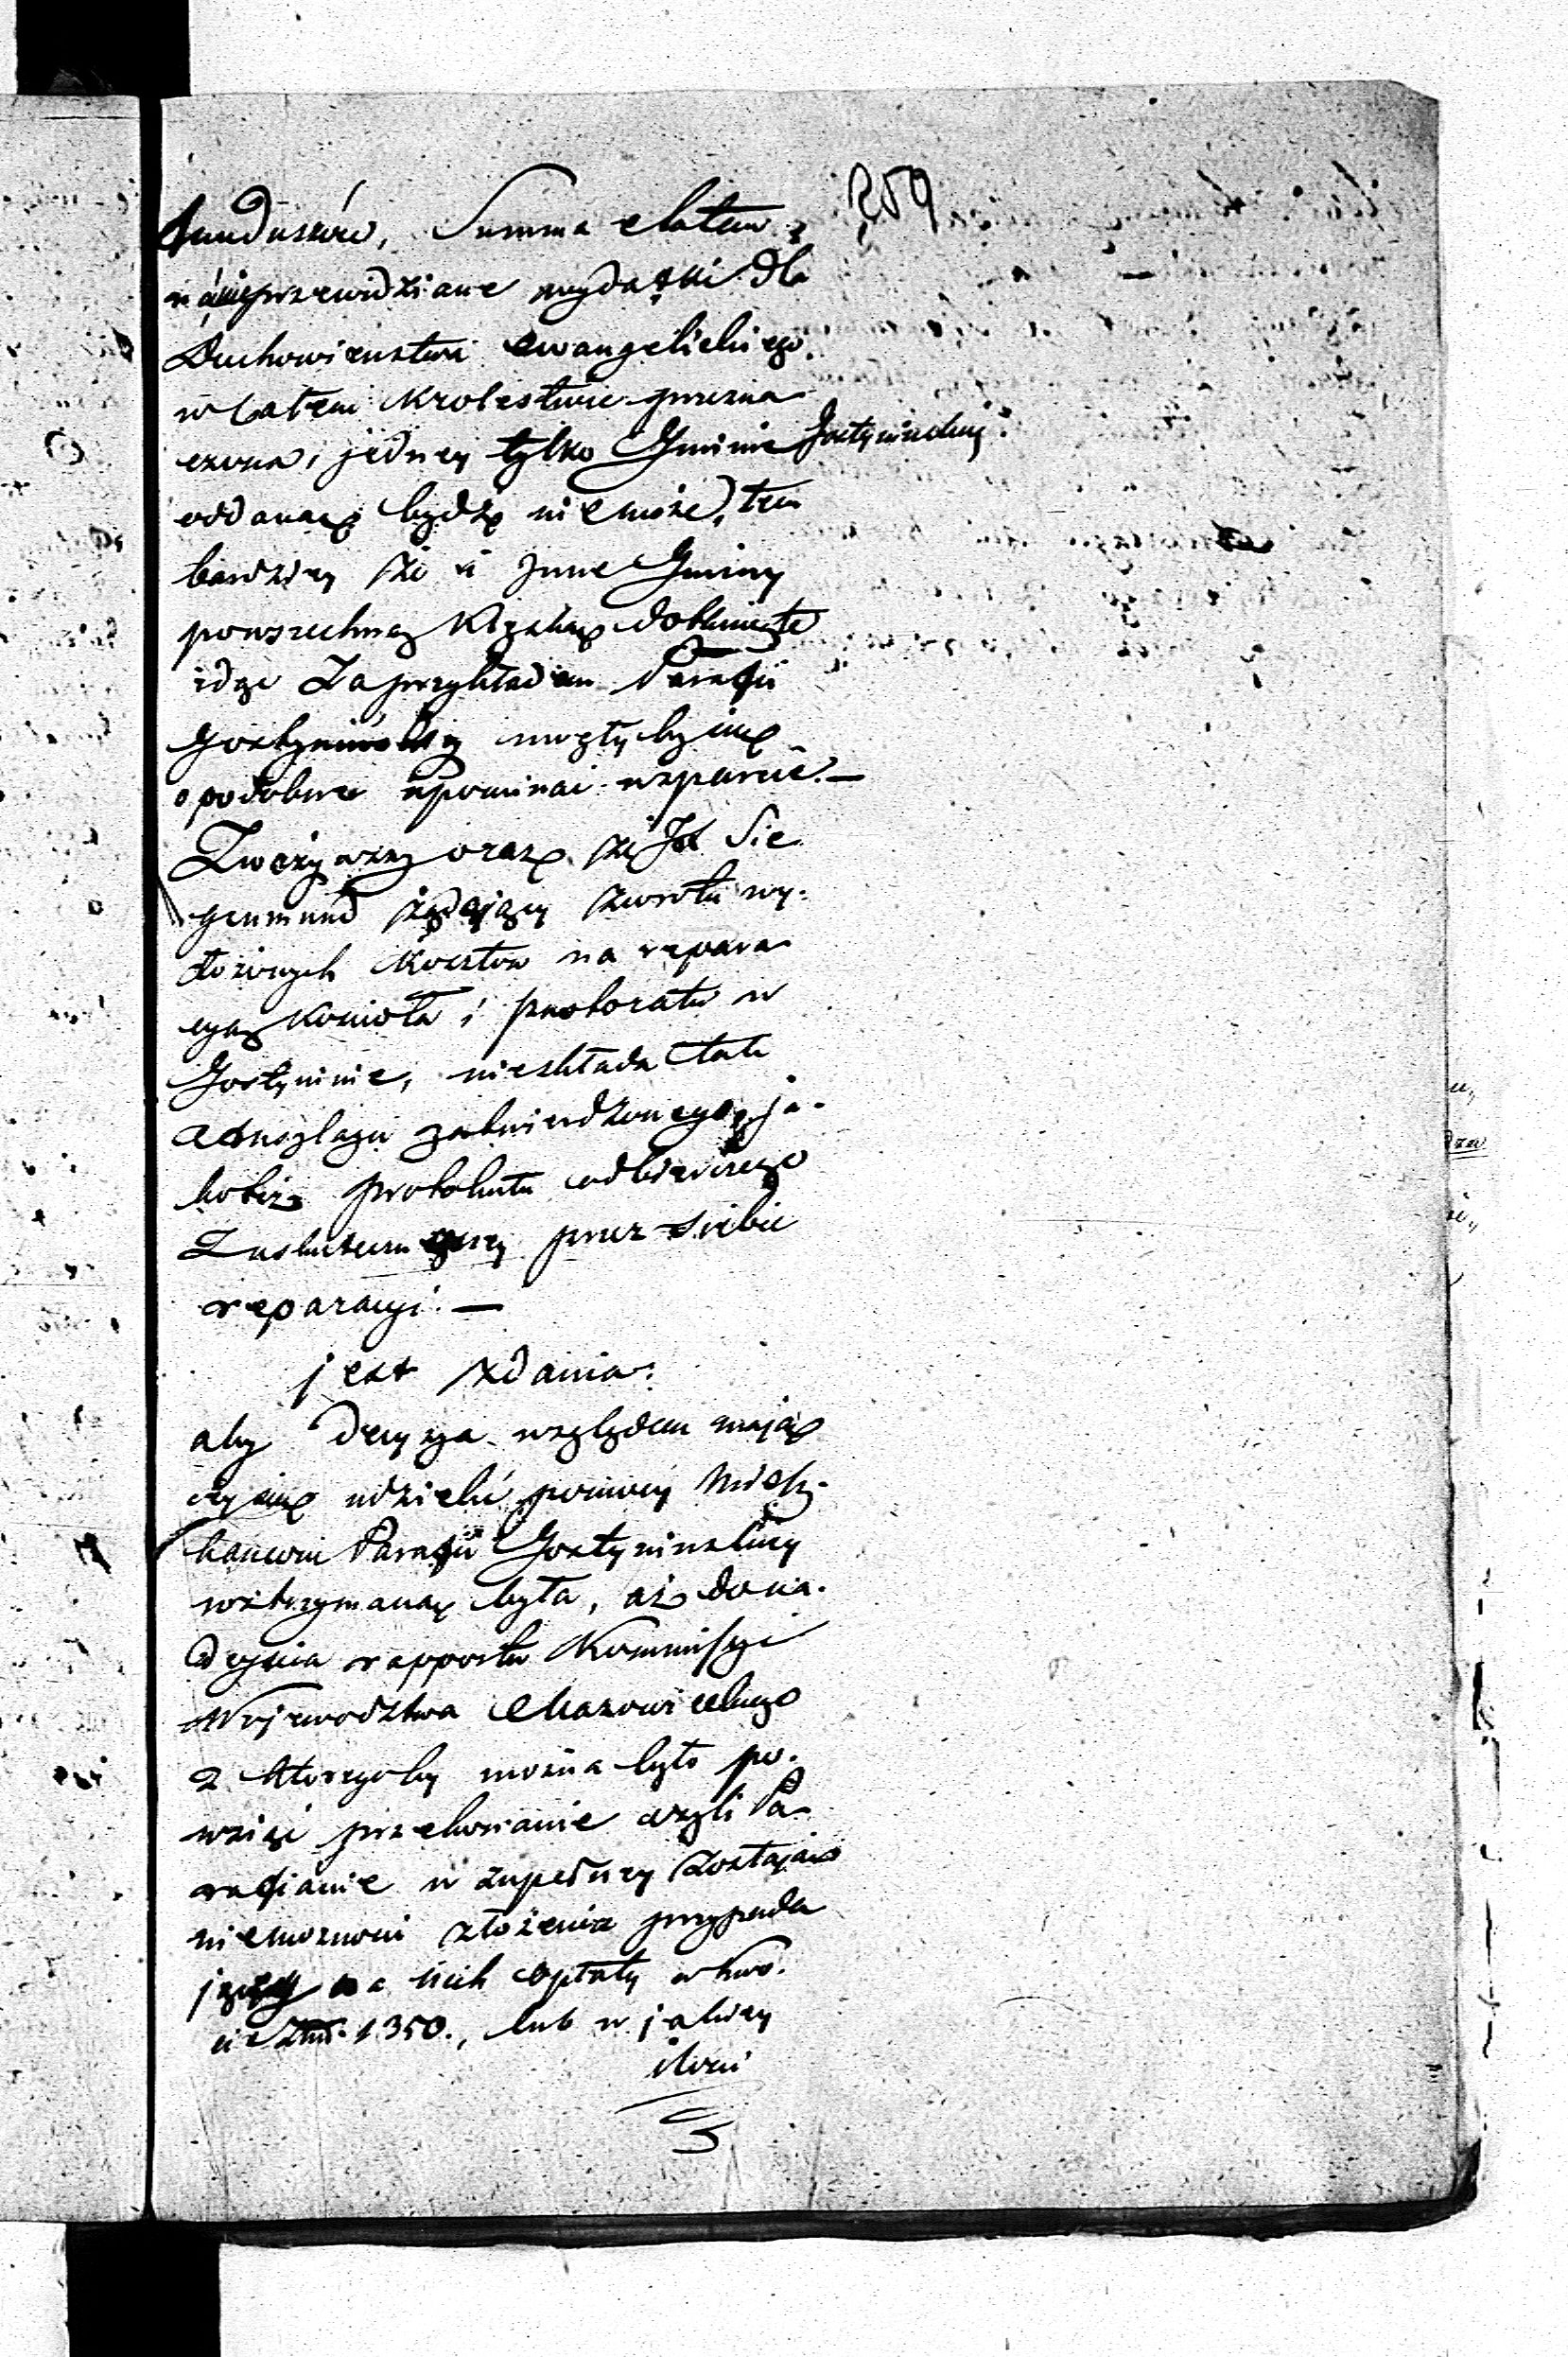 259
funduszów, Summa etatem
na nieprzewidziane wydatki dla
Duchowieństwa ewangelickiego
w całem Krolestwie przezna
czona, jedney tylko Gminie Gostynińskiej
oddaną bydź niemoże, tem
bardziey że i inne Gminy
powszechną klęską dotknięte
idąc za przykładem Parafii
Gostynińskiey mogłyby się
o podobne upominać wsparcie. —
Zważywszy oraz, że JX Sie
genmund żądający zwrotu wy-
łożonych kosztów na repara
cyą kościoła i pastoratu w
Gostyninie, nieskłada tak
Anszlagu zatwierdzonego, ja-
kotéz protokułu odbiorczego
przez siebie
reparacyi. —
jest zdania:
aby decyzya względem mają
cey się udzielić pomocy Miesz-
kańcom Parafii Gostynińskiey
wstrzymaną była, aż do na-
deyścia rapportu Kommissyi
Wojewodztwa Mazowieckiego
z ktoregoby można było po-
wziąć przekonanie czyli Pa
rafianie w zupełney zostają
niemożności złożenia przypada
jącey na nich opłaty w kwo-
cie 1350., lub w jakiey
ilości